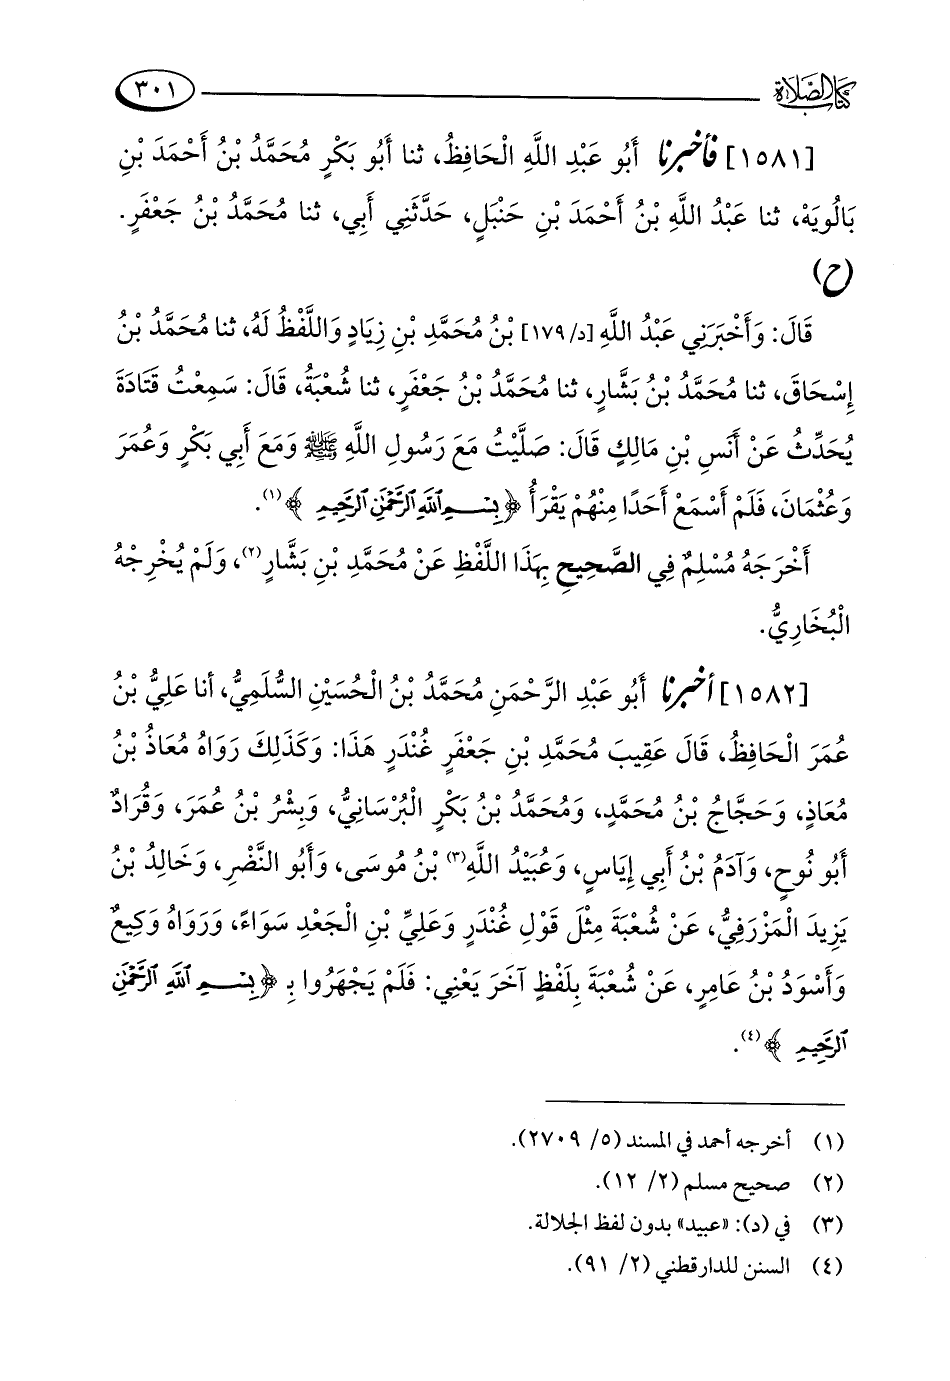 كتاب الصلاة ٣٠١
[١٥٨١] فأخبرنا أَبُو عَبْدِ اللَّهِ الْحَافِظُ، ثنا أَبُو بَكْرٍ مُحَمَّدُ بْنُ أَحْمَدَ بْنِ
بَالُويَهْ، ثنا عَبْدُ اللَّهِ بْنُ أَحْمَدَ بْنِ حَنْبَلٍ، حَدَّثَنِي أَبِي، ثنا مُحَمَّدُ بْنُ جَعْفَرٍ.
(ح)
قَالَ: وَأَخْبَرَنِي عَبْدُ اللَّهِ [د/١٧٩] بْنُ مُحَمَّدِ بْنِ زِيَادٍ وَاللَّفْظُ لَهُ، ثنا مُحَمَّدُ بْنُ
إِسْحَاقَ، ثنا مُحَمَّدُ بْنُ بَشَّارٍ، ثنا مُحَمَّدُ بْنُ جَعْفَرٍ، ثنا شُعْبَةُ، قَالَ: سَمِعْتُ قَتَادَةَ
يُحَدِّثُ عَنْ أَنَسِ بْنِ مَالِكٍ قَالَ: صَلَّيْتُ مَعَ رَسُولِ اللَّهِ ﷺ وَمَعَ أَبِي بَكْرٍ وَعُمَرَ
وَعُثْمَانَ، فَلَمْ أَسْمَعْ أَحَدًا مِنْهُمْ يَقْرَأُ ﴿بِسْمِ ٱللَّهِ ٱلرَّحْمَٰنِ ٱلرَّحِيمِ﴾(١).
أَخْرَجَهُ مُسْلِمٌ فِي الصَّحِيحِ بِهَذَا اللَّفْظِ عَنْ مُحَمَّدِ بْنِ بَشَّارٍ(٢)، وَلَمْ يُخْرِجْهُ
الْبُخَارِيُّ.
[١٥٨٢] أخبرنا أَبُو عَبْدِ الرَّحْمَنِ مُحَمَّدُ بْنُ الْحُسَيْنِ السُّلَمِيُّ، أنا عَلِيُّ بْنُ
عُمَرَ الْحَافِظُ، قَالَ عَقِيبَ مُحَمَّدِ بْنِ جَعْفَرٍ غُنْدَرٍ هَذَا: وَكَذَلِكَ رَوَاهُ مُعَاذُ بْنُ
مُعَاذٍ، وَحَجَّاجُ بْنُ مُحَمَّدٍ، وَمُحَمَّدُ بْنُ بَكْرٍ الْبُرْسَانِيُّ، وَبِشْرُ بْنُ عُمَرَ، وَقُرَادٌ
أَبُو نُوحٍ، وَآدَمُ بْنُ أَبِي إِيَاسٍ، وَعُبَيْدُ اللَّهِ(٣) بْنُ مُوسَى، وَأَبُو النَّضْرِ، وَخَالِدُ بْنُ
يَزِيدَ الْمَزْرَفِيُّ، عَنْ شُعْبَةَ مِثْلَ قَوْلِ غُنْدَرٍ وَعَلِيِّ بْنِ الْجَعْدِ سَوَاءً، وَرَوَاهُ وَكِيعٌ
وَأَسْوَدُ بْنُ عَامِرٍ، عَنْ شُعْبَةَ بِلَفْظٍ آخَرَ يَعْنِي: فَلَمْ يَجْهَرُوا بِـ ﴿بِسْمِ ٱللَّهِ ٱلرَّحْمَٰنِ
ٱلرَّحِيمِ﴾(٤).
(١) أخرجه أحمد في المسند (٥/ ٢٧٠٩).
(٢) صحيح مسلم (٢/ ١٢).
(٣) في (د): «عبيد» بدون لفظ الجلالة.
(٤) السنن للدارقطني (٢/ ٩١).